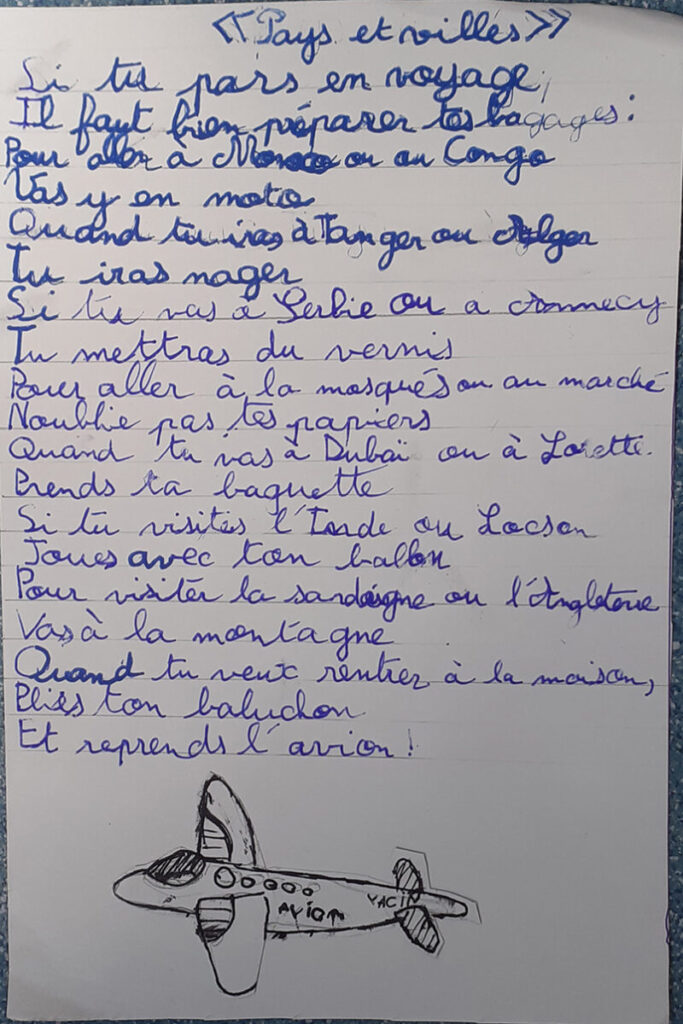 « Pays et villes »
Si tu pars en voyage,
Il faut bien préparer tes bagages :
Pour aller à Monaco ou au Congo
Vas y en moto
Quand tu iras à Tanger ou Alger
Tu iras nager
Si tu vas à Serbie ou a Annecy
Tu mettras du vernis
Pour aller à la mosqués ou au marché
Noublie pas tes papiers
Quand tu vas à Dubaï ou à Lorette.
Prends ta baguette
Si tu visites l'Inde ou
Joues avec ton ballon
Pour visiter la sardaigne ou l'Angleterre
Vas à la montagne
Quand tu veux rentrer à la maison,
Plies ton baluchon
Et reprends l'avion !
AVION